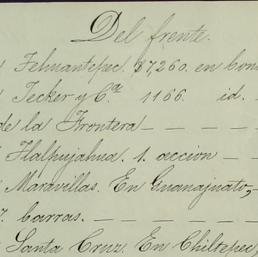 Del frente.
Tehuantepec. $7,260. en bon
Jecker y Cª 1166. id.
de la Frontera — — — —
Tlalpujahua. 1. accion — —
Maravillas. En Guanajuato,—
7. barras. — — — — —
Santa Cruz. En Chiltepec,